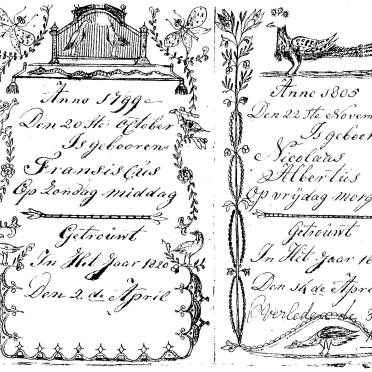 Anno 1799
Den 20 Ste October
Is gebooren
Fransiscus
Op Zondag middag
Getrouwt
In Het Jaar 1820
Den 2 de April
Anne 1805
Den 22 Ste Novem
Is geboor
Nicolaus
Albertus
Op vrijdag morg
Getrouwt
In Het Jaar
Den 14 de Apri
Verleden de